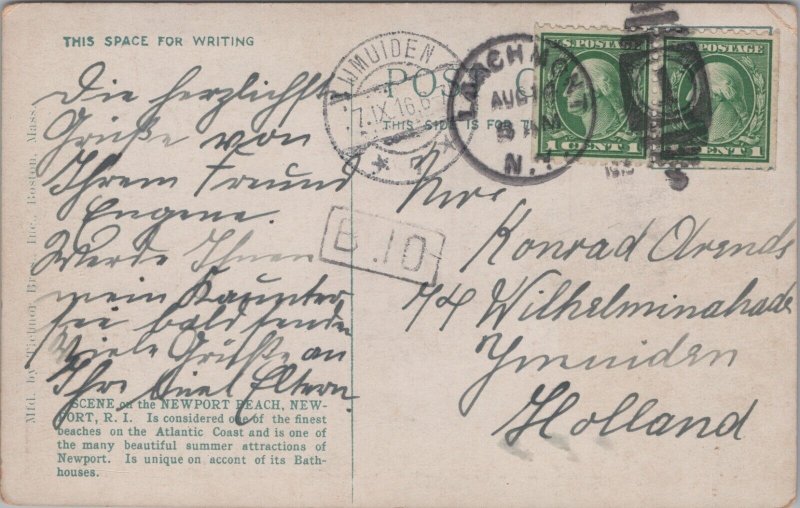 THIS SPACE FOR WRITING
Die herzlichsten
Grüße von
Ihrem Freund
Eugene.
Werde Ihnen
mein
bald senden
Viele Grüße an
Ihre Eltern.
SCENE on the NEWPORT BEACH, NEW-
PORT, R. I. Is considered one of the finest
beaches on the Atlantic Coast and is one of
the many beautiful summer attractions of
Newport. Is unique on accont of its Bath-
houses.
Mfd. by Tichnor Bros. Inc., Boston, Mass.
POST C
THIS SIDE IS FOR TH
IJMUIDEN
7.IX.16.6
LARCHMONT
AUG 18
N.Y.
U.S. POSTAGE
1 CENT 1
U.S. POSTAGE
1 CENT 1
B.10
Mrs
Konrad Arends
74 Wilhelminakade
Ymuiden
Holland